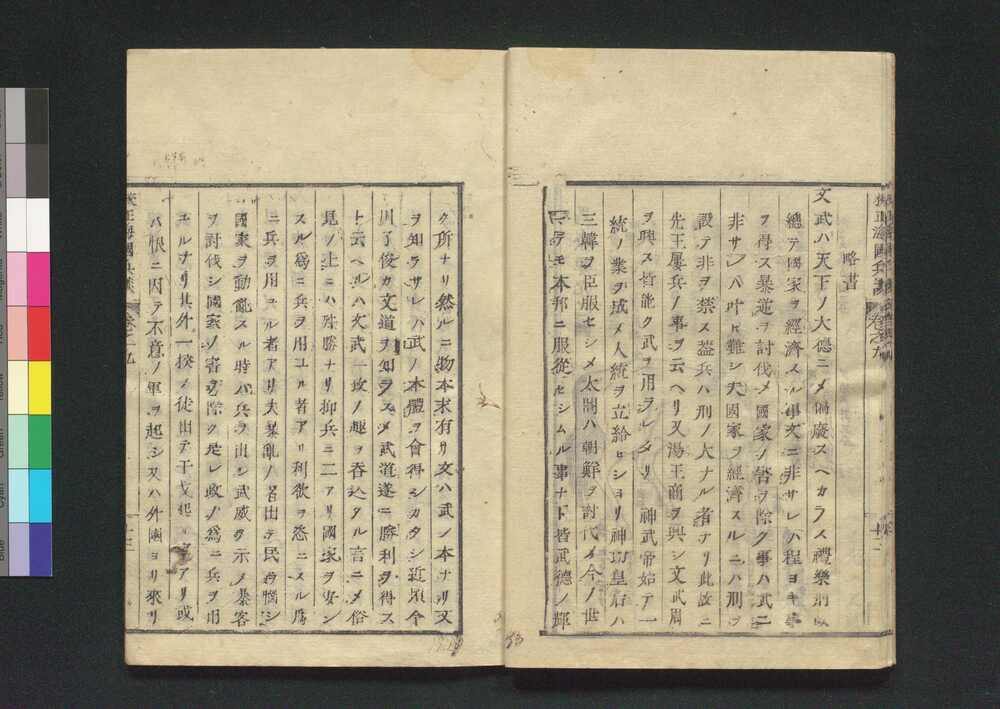 略書
文武ハ天下ノ大德ニメ偏廢スヘカラス禮樂刑政
總テ國家ヲ經濟スル事文ニ非サレハ程ヨキ事
ヲ得ス暴逆ヲ討伐メ國家ノ害ヲ除ク事ハ武ニ
非サレハ叶ヒ難シ夫國家ヲ經濟スルニハ刑ヲ
設テ非ヲ禁ス蓋兵ハ刑ノ大ナル者ナリ此故ニ
先王屢兵ノ事ヲ云ヘリ又湯王商ヲ興シ文武周
ヲ興ス皆能ク武ヲ用ラレタリ 神武帝始テ一
統ノ業ヲ成メ人統ヲ立給ヒシヨリ神功皇后ハ
三韓ヲ臣服セシメ太閤ハ朝鮮ヲ討伐メ今ノ世
マテモ本邦ニ服從セシムル事ナト皆武德ノ輝
ク所ナリ然ルニ物本末有リ文ハ武ノ本ナリ文
ヲ知ラサレハ武ノ本體ヲ會得シカタシ近頃今
川了俊カ文道ヲ知ラスメ武道遂ニ勝利ヲ得ス
ト云ヘルハ文武一致ノ趣ヲ呑込タル言ニメ俗
見ノ上ニハ殊勝ナリ抑兵ニ二アリ國家ヲ安ン
スル爲ニ兵ヲ用ユル者アリ利欲ヲ恣ニスル爲
ニ兵ヲ用ユル者アリ夫暴亂ノ者出テ民ヲ惱シ
國家ヲ動亂スル時ハ兵ヲ出シ武威ヲ示メ暴客
ヲ討伐シ國家ノ害ヲ除ク是レ政ノ爲ニ兵ヲ用
ユルナリ其外一揆ノ徒出テ干戈起ル アリ或
ハ恨ニ因テ不意ノ軍ヲ起シ又ハ外國ヨリ來リ